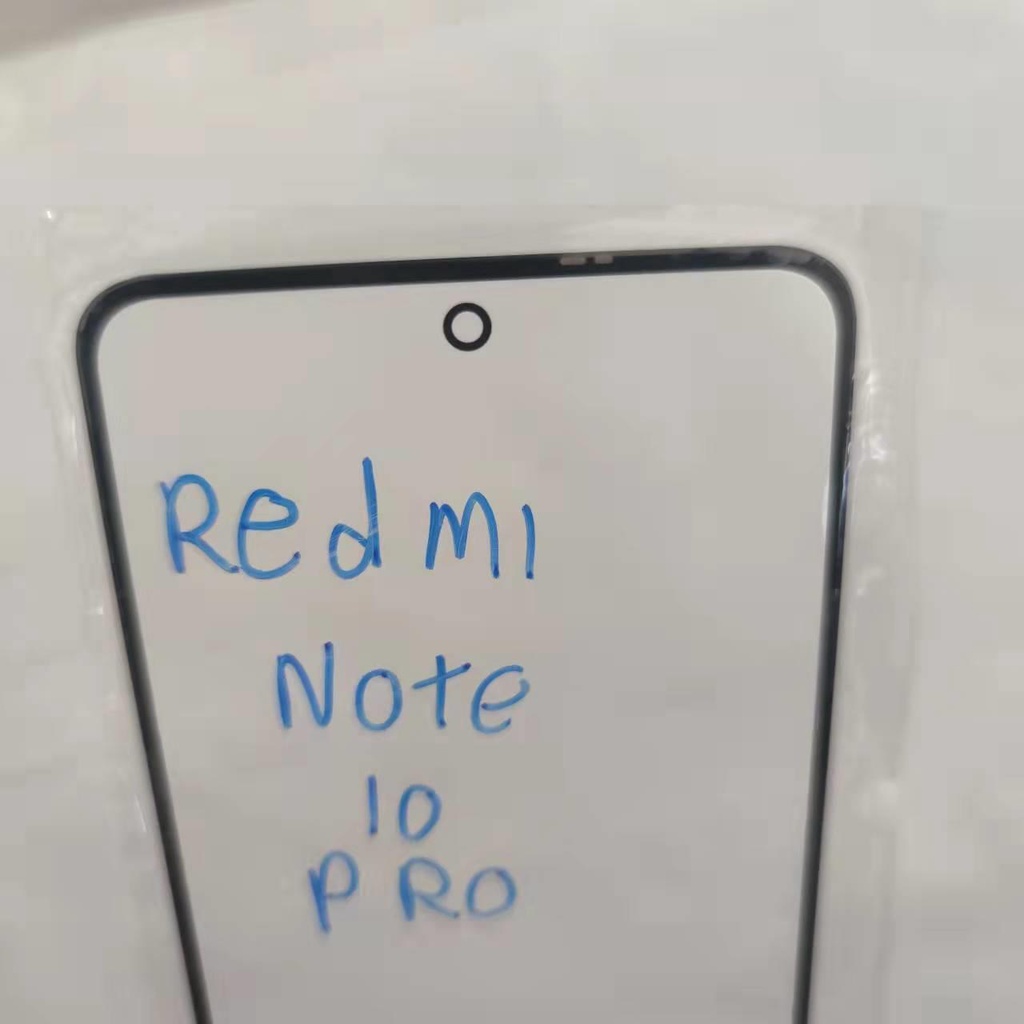 Redmi
Note
10
PRO